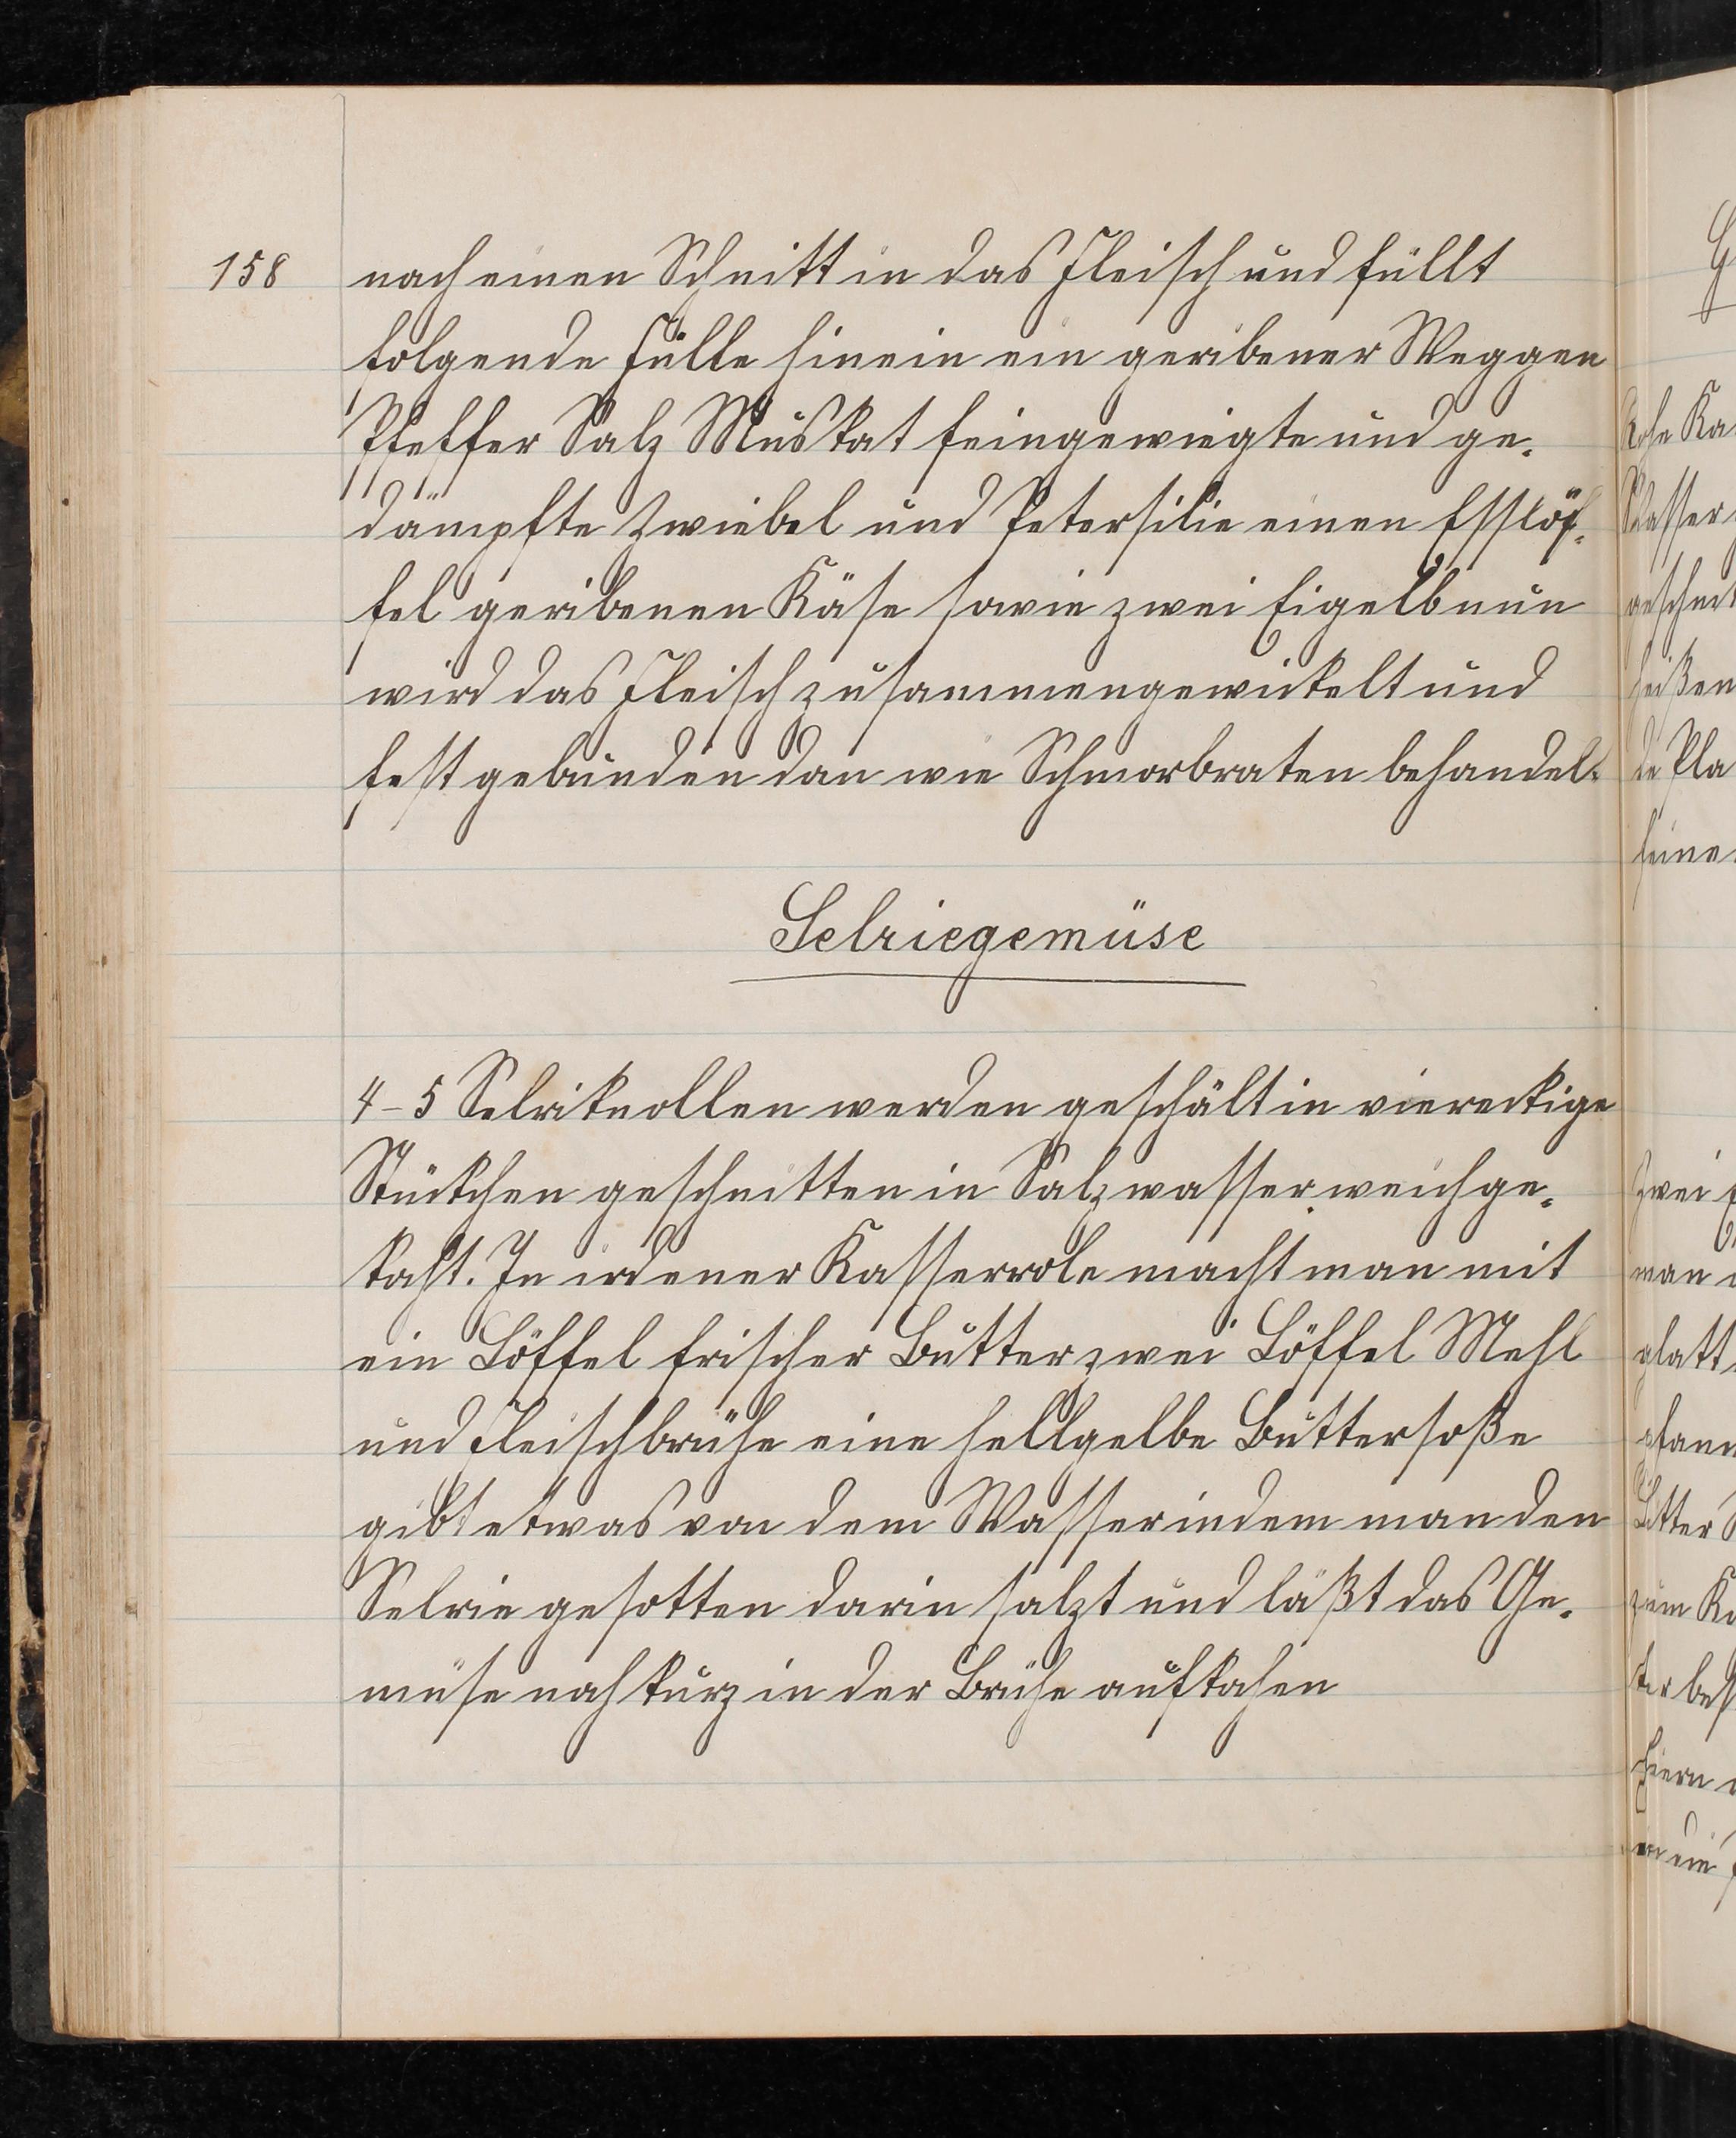 158
nach einen Schnitt in das Fleisch und füllt
folgende Fülle hinein ein geribener Weggen
Pfeffer Salz Muskat feingewiegte und ge-
dämpfte Zwiebel und Petersilie einen Esslöf-
fel geribenen Käse sowie zwei Eigelb nun
wird das Fleisch zusammengewickelt und
fest gebunden dan wie Schmorbraten behandelt
Selriegemüse
4-5 Selriknollen werden geschält in viereckige
Stückchen geschnitten in Salzwasser weichge-
kocht. In irdener Kasserrole macht man mit
ein Löffel frischer Butter zwei Löffel Mehl
und Fleischbrühe eine hellgelbe Buttersoße
gibt etwas von dem Wasser indem man den
Selrie gesotten darin salzt und läßt das Ge-
müse noch kurz in der Brühe aufkochen